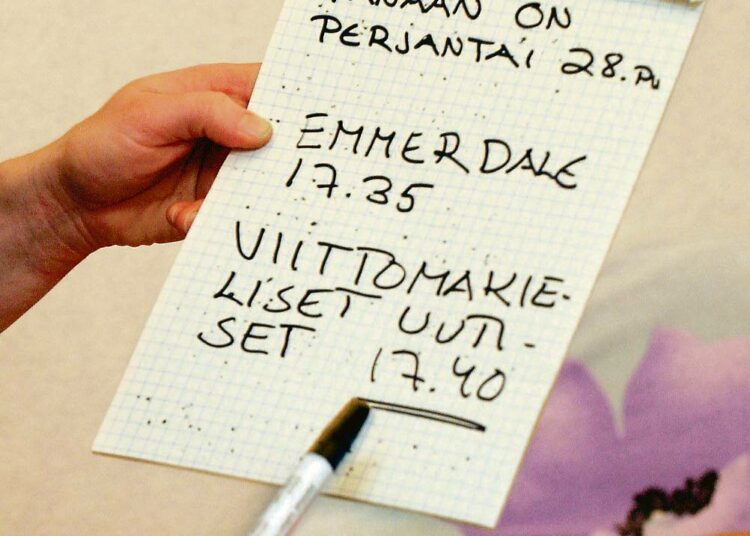 TÄNÄÄN ON
PERJANTAI 28. PV
EMMERDALE
17.35
VIITTOMAKIE-
LISET UUTI-
SET 17.40